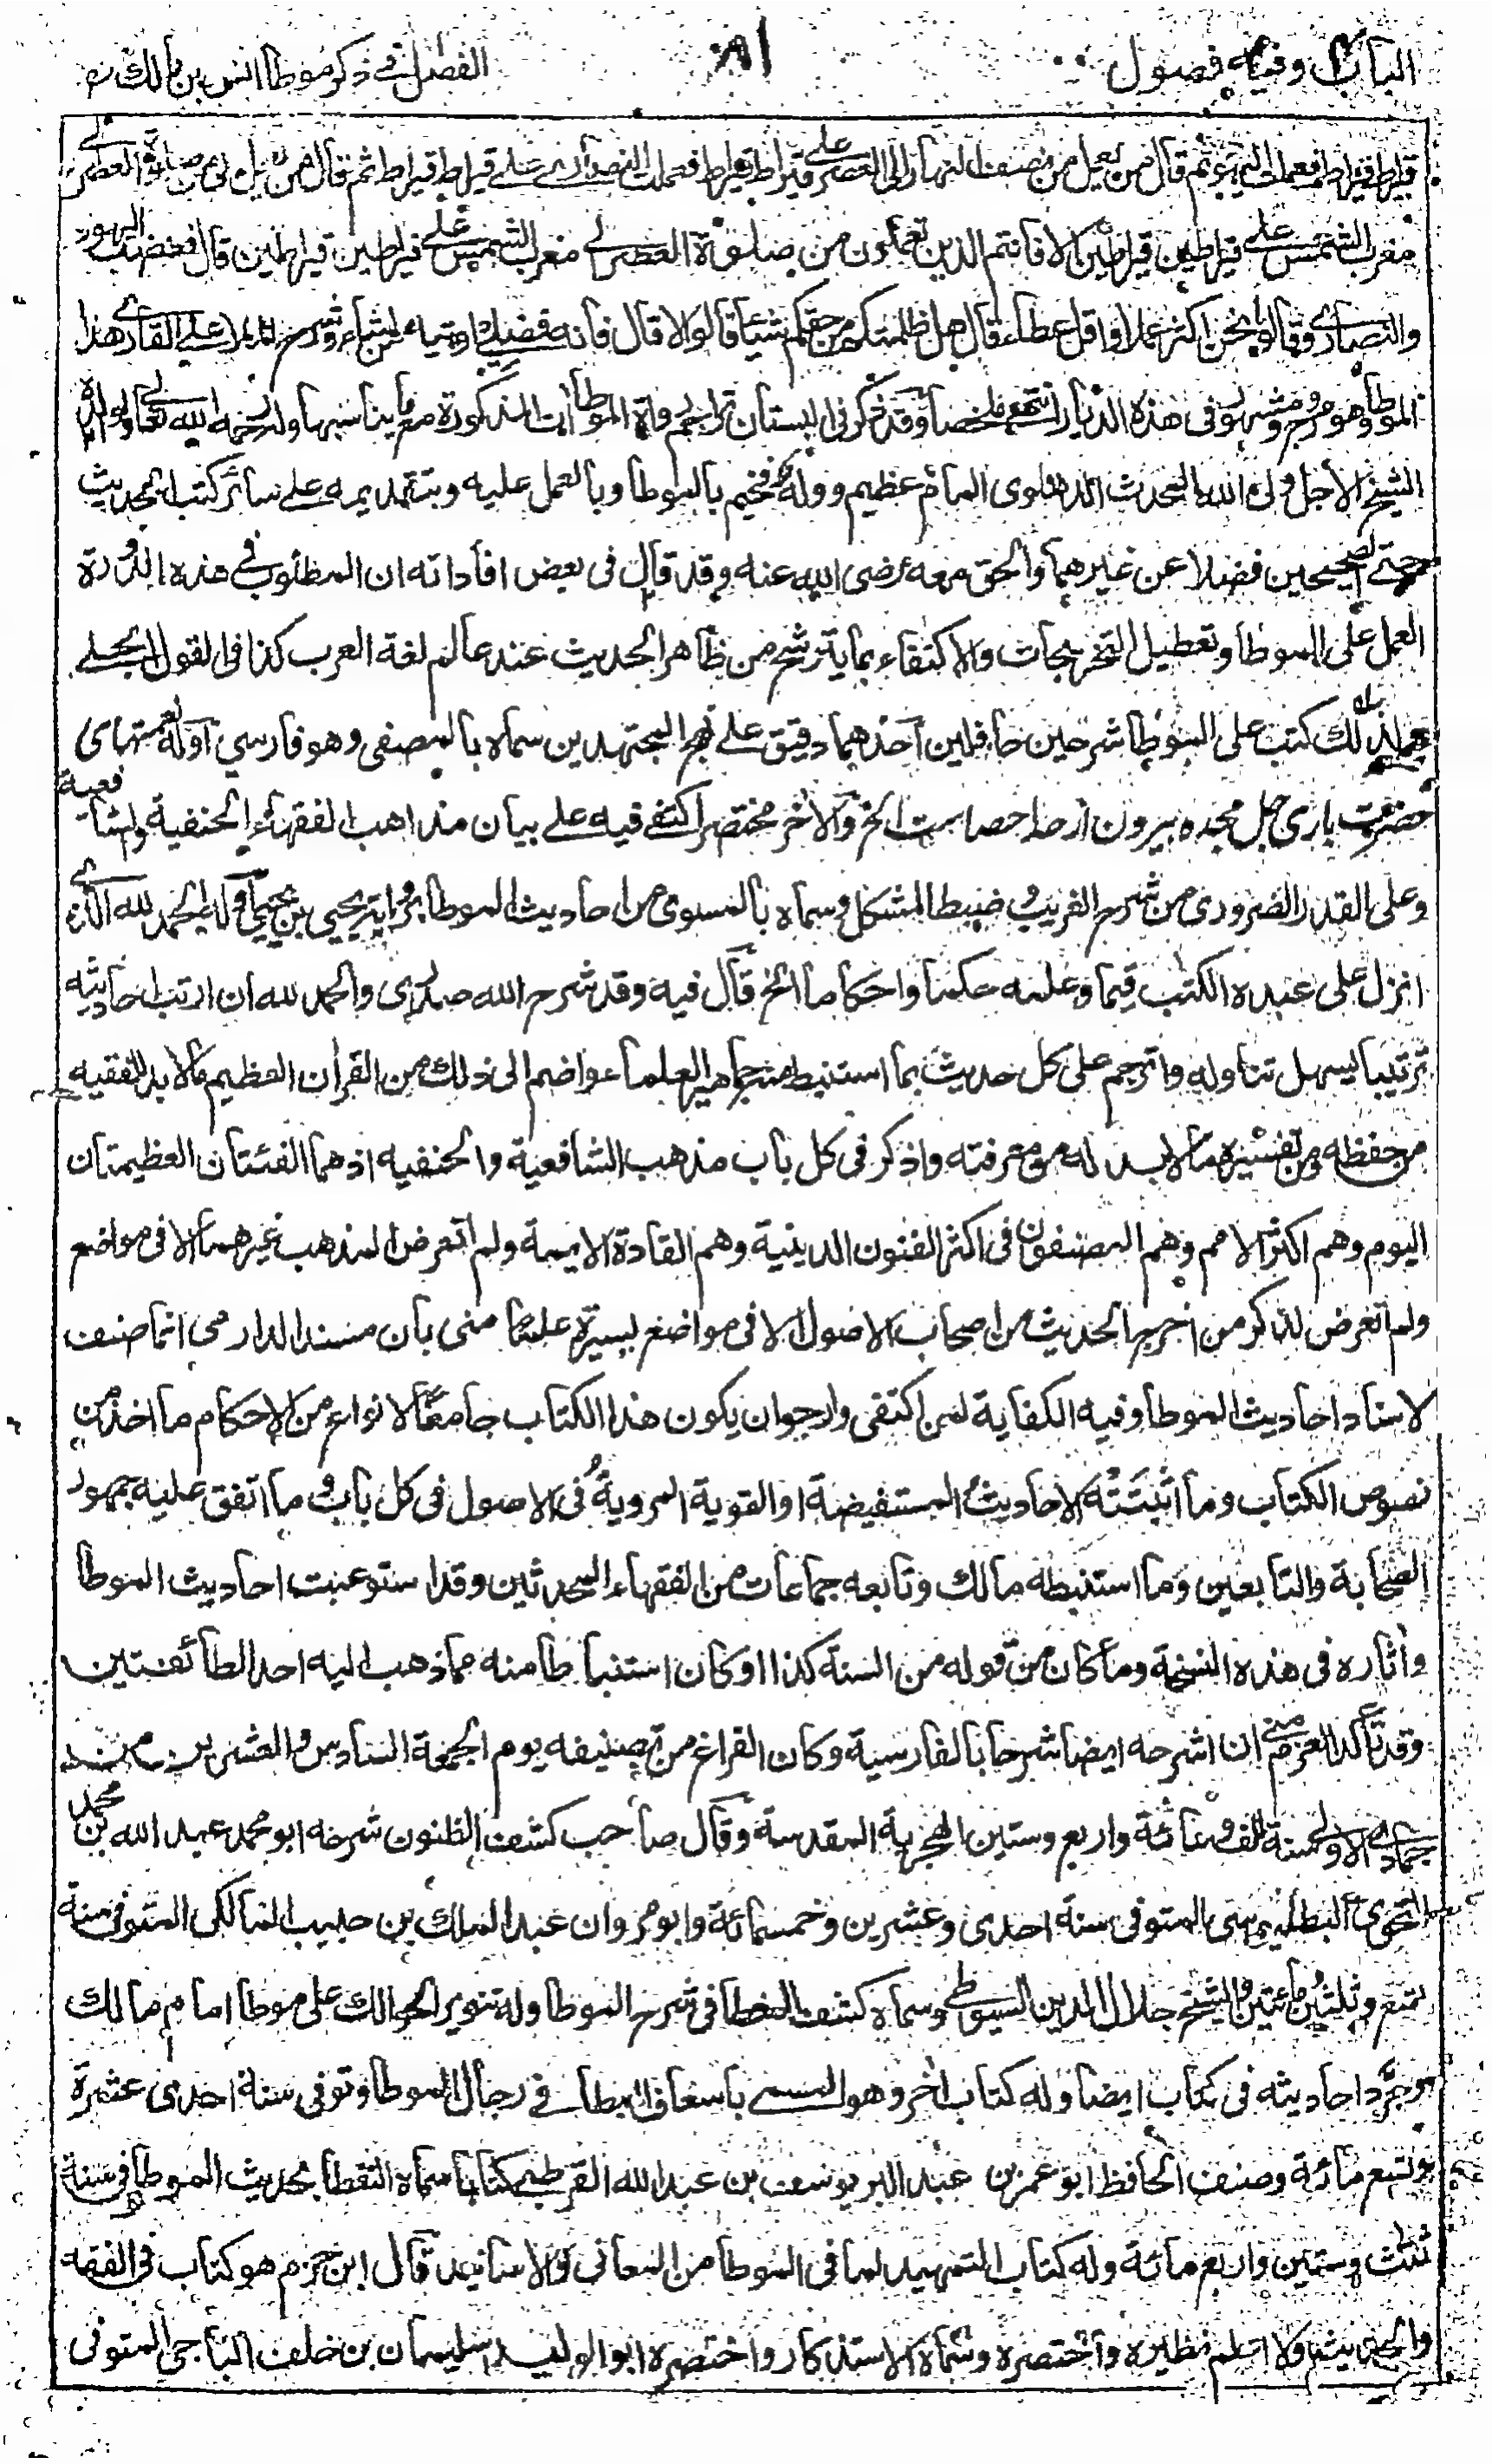 الباب وفيه فصول
٨١
الفصل في ذكر موطا انس بن مالك
قيراط قيراط فعملت اليهود ثم قال من يعمل من نصف النهار الى العصر على قيراط قيراط فعملت النصارى على قيراط قيراط ثم قال من يعمل لى من صلوة العصر الى
مغرب الشمس على قيراطين قيراطين الا فانتم الذين تعملون من صلوة العصر الى مغرب الشمس على قيراطين قيراطين قال فغضبت اليهود
والنصارى وقالوا نحن اكثر عملا واقل عطاء قال هل ظلمتكم من حقكم شيئا قالوا لا قال فانه فضلى اوتيه من اشاء وشرح الملا على القارى هذا
الموطا وهو مروج ومشهور فى هذه الديار انتهى ملخصا وقد ذكر فى البستان تراجم رواة الموطات المذكورة مع ما يناسبها ولد رحمه الله تعالى
الشيخ الاجل ولى الله المحدث الدهلوى المام عظيم ووله فخيم بالموطا وبالعمل عليه وبتقديمه على سائر كتب الحديث
حتى الصحيحين فضلا عن غيرهما والحق معه رضى الله عنه وقد قال فى بعض افاداته ان المطلوب فى هذه الدورة
العمل على الموطا وتعطيل التخريجات والاكتفاء بما يترشح من ظاهر الحديث عند عالم لغة العرب كذا فى القول الجلى
ولذلك كتب على الموطا شرحين حافلين احدهما دقيق على نهج المجتهدين سماه بالمصفى وهو فارسي اوله نعمتهاى
حضرت بارى جل مجده بيرون از حد احصاست الخ والاخر مختصر اكتفى فيه على بيان مذاهب الفقهاء الحنفية والشافعية
وعلى القدر الضرورى من شرح الغريب وضبط المشكل وسماه بالمسوى من احاديث الموطا برواية يحيى بن يحيى اوله الحمد لله الذى
انزل على عبده الكتب قيما وعلمه حكما واحكاما الخ قال فيه وقد شرح الله صدرى والحمد لله ان ارتب احاديثه
ترتيبا يسهل تناوله واترجم على كل حديث بما استنبط منه جماهير العلماء واضم الى ذلك من القران العظيم ما لابد للفقيه
من حفظه ومن تفسيره ما لابد له من معرفته واذكر فى كل باب مذهب الشافعية والحنفيه اذ هما الفئتان العظيمتان
اليوم وهم اكثر الامم وهم المصنفون فى اكثر الفنون الدينية وهم القادة الايمة ولم اتعرض لمذهب غيرهما الا فى مواضع
ولم اتعرض لذكر من اخرج الحديث من اصحاب الاصول الا فى مواضع يسيرة علما منى بان مسند الدارمى انما صنف
لاسناد احاديث الموطا وفيه الكفاية لمن اكتفى وارجو ان يكون هذا الكتاب جامعا لانواع من الاحكام ما اخذ من
نصوص الكتاب وما اثبتته الاحاديث المستفيضة او القوية المروية فى الاصول فى كل باب وما اتفق عليه جمهور
الصحابة والتابعين وما استنبطه مالك وتابعه جماعات من الفقهاء المحدثين وقد استوعبت احاديث الموطا
واثاره فى هذه النسخة وما كان من قوله من السنة كذا او كان استنباطا منه مما ذهب اليه احد الطائفتين
وقد تاكد العزم منى ان اشرحه ايضا شرحا بالفارسية وكان الفراغ من تصنيفه يوم الجمعة السادس والعشرين من
جمادى الاولى سنة الف ومائة واربع وستين الهجرية المقدسة وقال صاحب كشف الظنون شرحه ابو محمد عبد الله بن محمد
النحوى البطليوسى المتوفى سنة احدى وعشرين وخمسمائة وابو مروان عبد الملك بن حبيب المالكى المتوفى سنة
تسع وثلثين ومائتين والشيخ جلال الدين السيوطى وسماه كشف الغطا فى شرح الموطا وله تنوير الحوالك على موطا امام مالك
وجرد احاديثه فى كتاب ايضا وله كتاب اخر وهو المسمى باسعاف المبطا فى رجال الموطا وتوفى سنة احدى عشرة
وتسع مائة وصنف الحافظ ابو عمر بن عبد البر يوسف بن عبد الله القرطبى كتابا سماه التقطا بحديث الموطا توفى سنة
ثلث وستين واربع مائة وله كتاب التمهيد لما فى الموطا من المعانى والاسانيد قال ابن حزم هو كتاب فى الفقه
والحديث ولا اعلم نظيره واختصره وسماه الاستذكار واختصره ابو الوليد سليمان بن خلف الباجى المتوفى